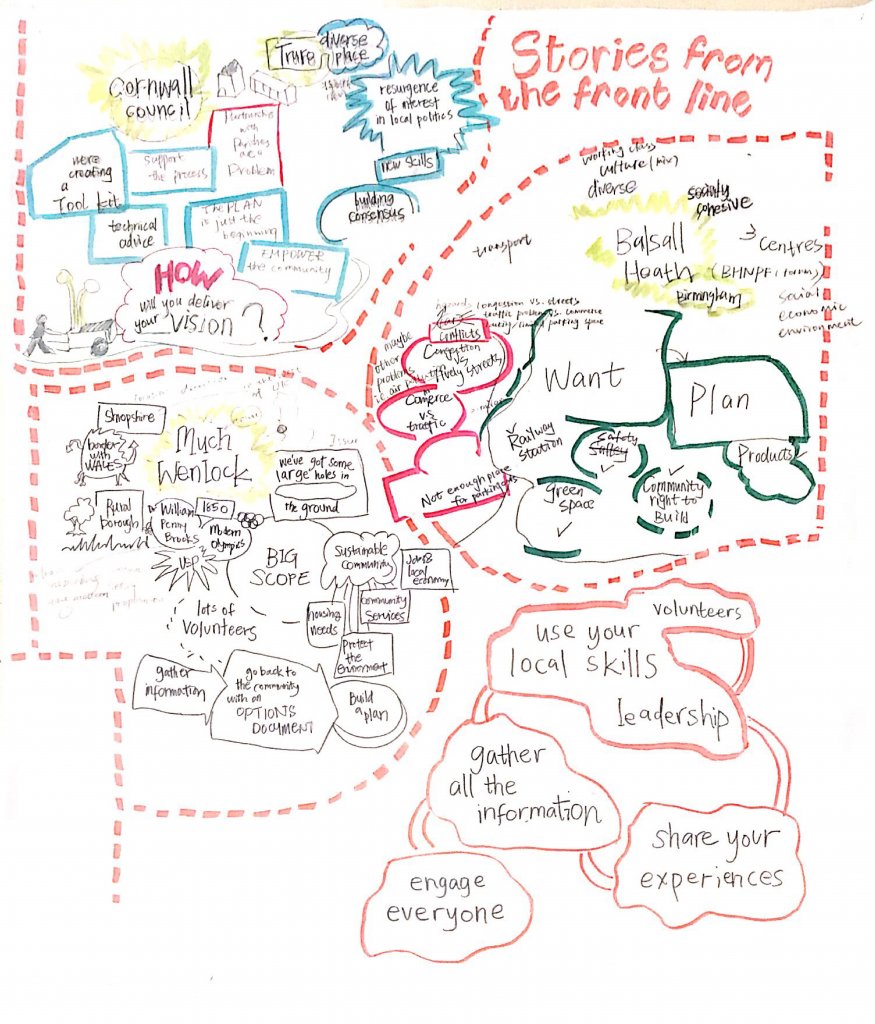 Stories from
the front line
Cornwall
council
Truro
diverse
place
resurgence
of interest
in local politics
new skills
building
consensus
we're
creating
a
Tool kit
support
the process
Partnership
with
Parishes
are a
Problem
technical
advice
The PLAN
is just the
beginning
EMPOWER
the community
HOW
will you deliver
your VISION?
working class
culture (mix)
diverse
socially
cohesive
Balsall
Heath (BHNPF
Birmingham
3 centres
social
economic
environment
transport
congestion vs. streets
traffic problem vs. commerce
limited parking space
maybe
other
problems
Conflicts
Congestion
vs
lively streets
Commerce
v.s
traffic
Not enough place
for parking
Want
Plan
Products
Railway
station
Safety
green
space
Community
right to
Build
Shropshire
border
with
WALES
Much
Wenlock
Issue
we've got some
large holes in
the ground
Rural
borough
Dr William
Penny
Brooks
1850
Modern
Olympics
USP
BIG
SCOPE
Sustainable
community
Jobs &
local
economy
Community
Services
housing
needs
Protect
the
Environment
lots of
volunteers
gather
information
go back to
the community
with an
OPTIONS
DOCUMENT
Build
a plan
volunteers
use your
local skills
leadership
gather
all the
information
share your
experiences
engage
everyone